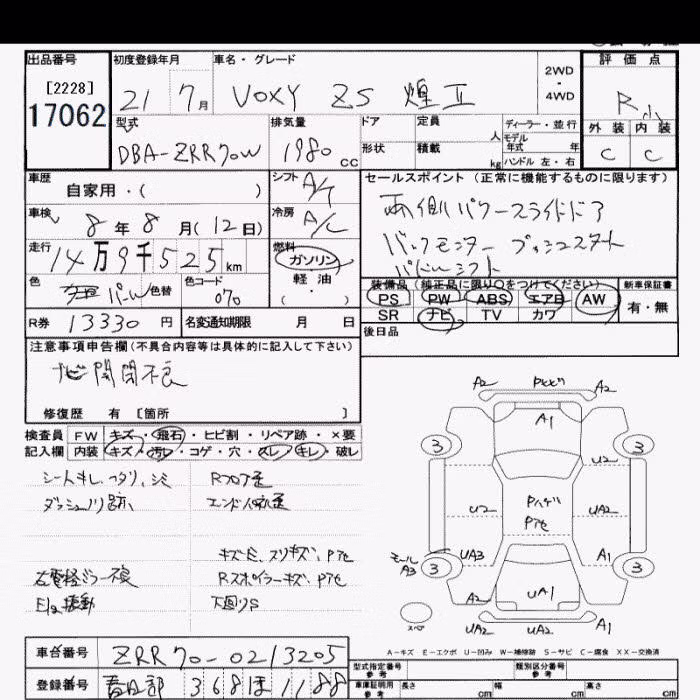 出品番号 初度登録年月 車名・グレード 2WD ・ 4WD 評価点
[2228] 21 7月 VOXY ZS 煌Ⅱ R小
17062 型式 排気量 ドア 定員 人 ディーラー・並行 外装 内装
DBA-ZRR70W 1980 cc 形状 積載 kg モデル年式 年 ハンドル 左・右 C C
車歴 自家用・( ) シフト A/T セールスポイント (正常に機能するものに限ります)
車検 8年8月(12日) 冷房 A/C 両側パワースライドドア
走行 14万9千525km 燃料 ガソリン バックモニター プッシュスタート
軽油 パドルシフト
色 パール 色替 色コード 070 ( ) 装備品(純正品に限り○をつけてください) 新車保証書
PS PW ABS エアB AW 有・無
R券 13330円 名変通知期限 月 日 SR ナビ TV カワ
後日品
注意事項申告欄(不具合内容等は具体的に記入して下さい)
ナビ開閉不良
修復歴 有 [箇所 ]
検査員 FW キズ・飛石・ヒビ割・リペア跡・×要
記入欄 内装 キズ・汚レ・コゲ・穴・スレ・キレ・破レ
シートキレ、ヘタリ、シミ Rフロア歪
ダッシュノリ跡 エンドパネル歪
キズ・E、スリキズ、Pアセ
左電格ミラー不良 Rスポイラーキズ、Pアセ
E/g振動 下回りS
A2 Pトビ A2
A1
3 3
U2
U2 Pハゲ UA2
Pアセ
UA3 A1
モールA3 3 3
UA1
スペア UA2 UA2 UA1
A-キズ E-エクボ U-凹み W-補修跡 S-サビ C-腐食 XX-交換済
車台番号 ZRR70-0213205
型式指定番号 類別区分番号
登録番号 春日部 368ほ1188
車庫証明用参考 長さ cm 幅 cm 高さ cm